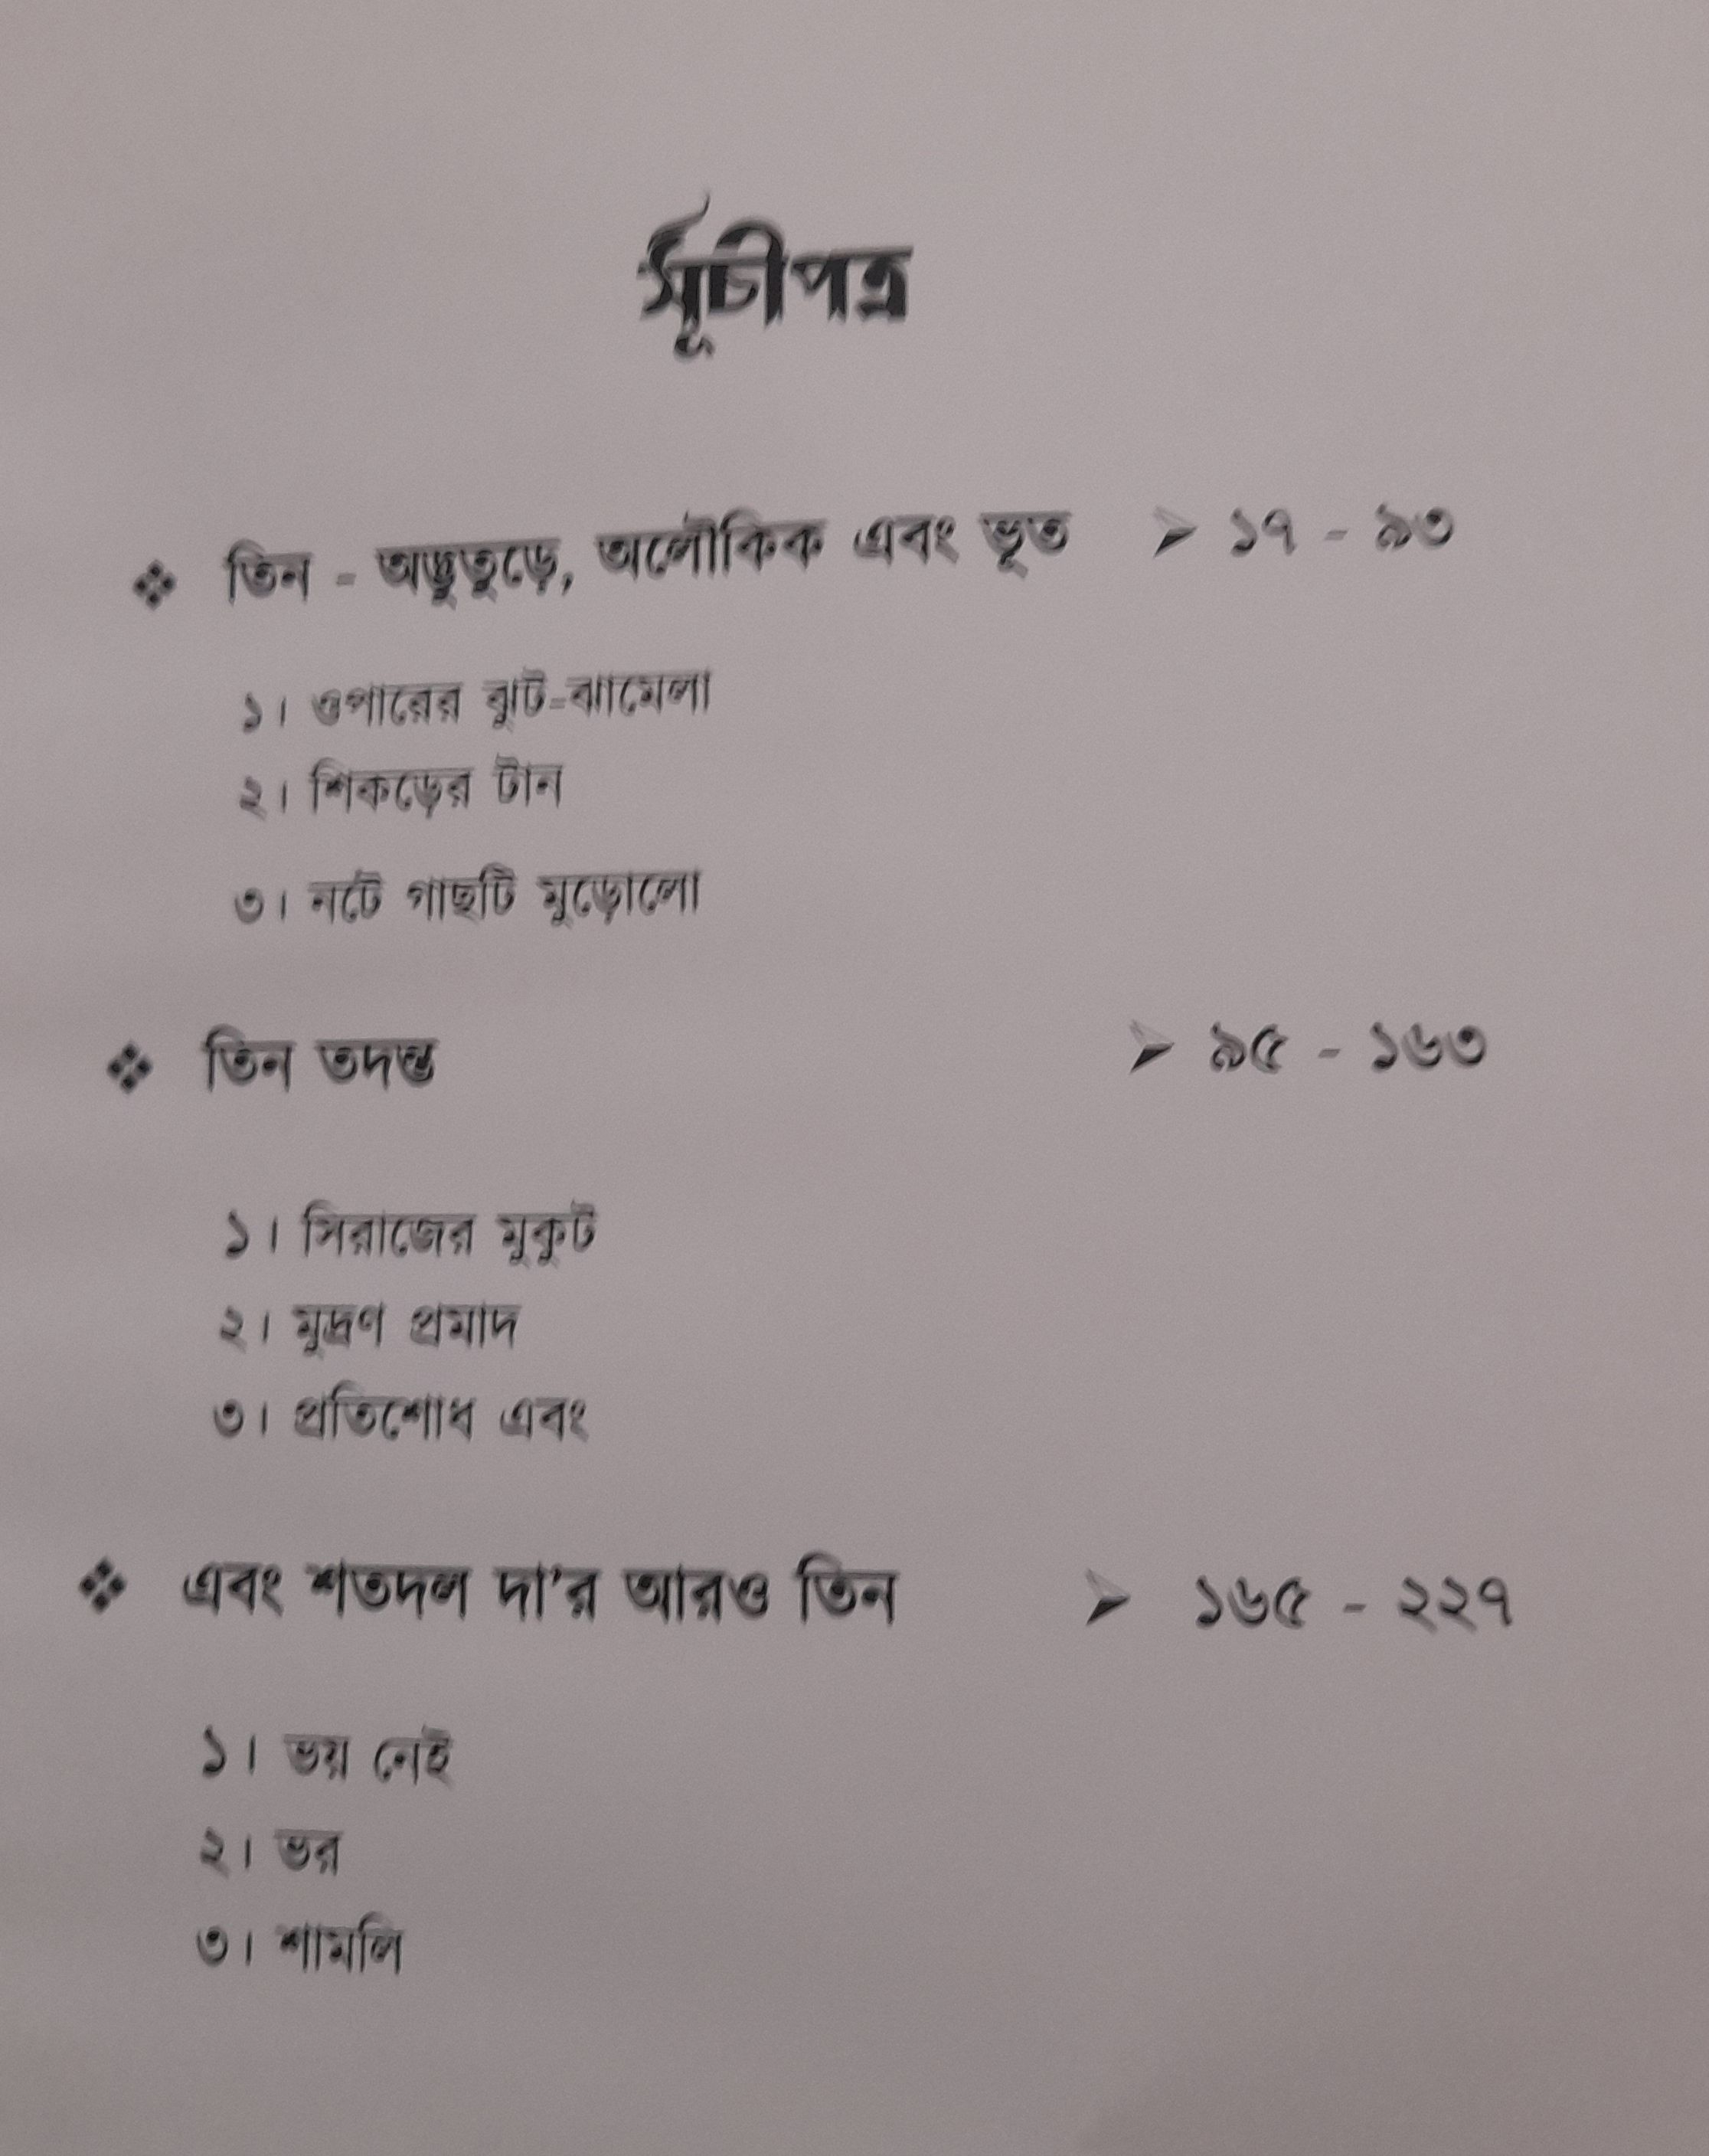 সূচীপত্র
❖ তিন - অদ্ভুতুড়ে, অলৌকিক এবং ভূত ➤ ১৭ - ৯৩
১। ওপারের ঝুট-ঝামেলা
২। শিকড়ের টান
৩। নটে গাছটি মুড়োলো
❖ তিন তদন্ত ➤ ৯৫ - ১৬৩
১। সিরাজের মুকুট
২। মুদ্রণ প্রমাদ
৩। প্রতিশোধ এবং
❖ এবং শতদল দা'র আরও তিন ➤ ১৬৫ - ২২৭
১। ভয় নেই
২। ভর
৩। শামলি